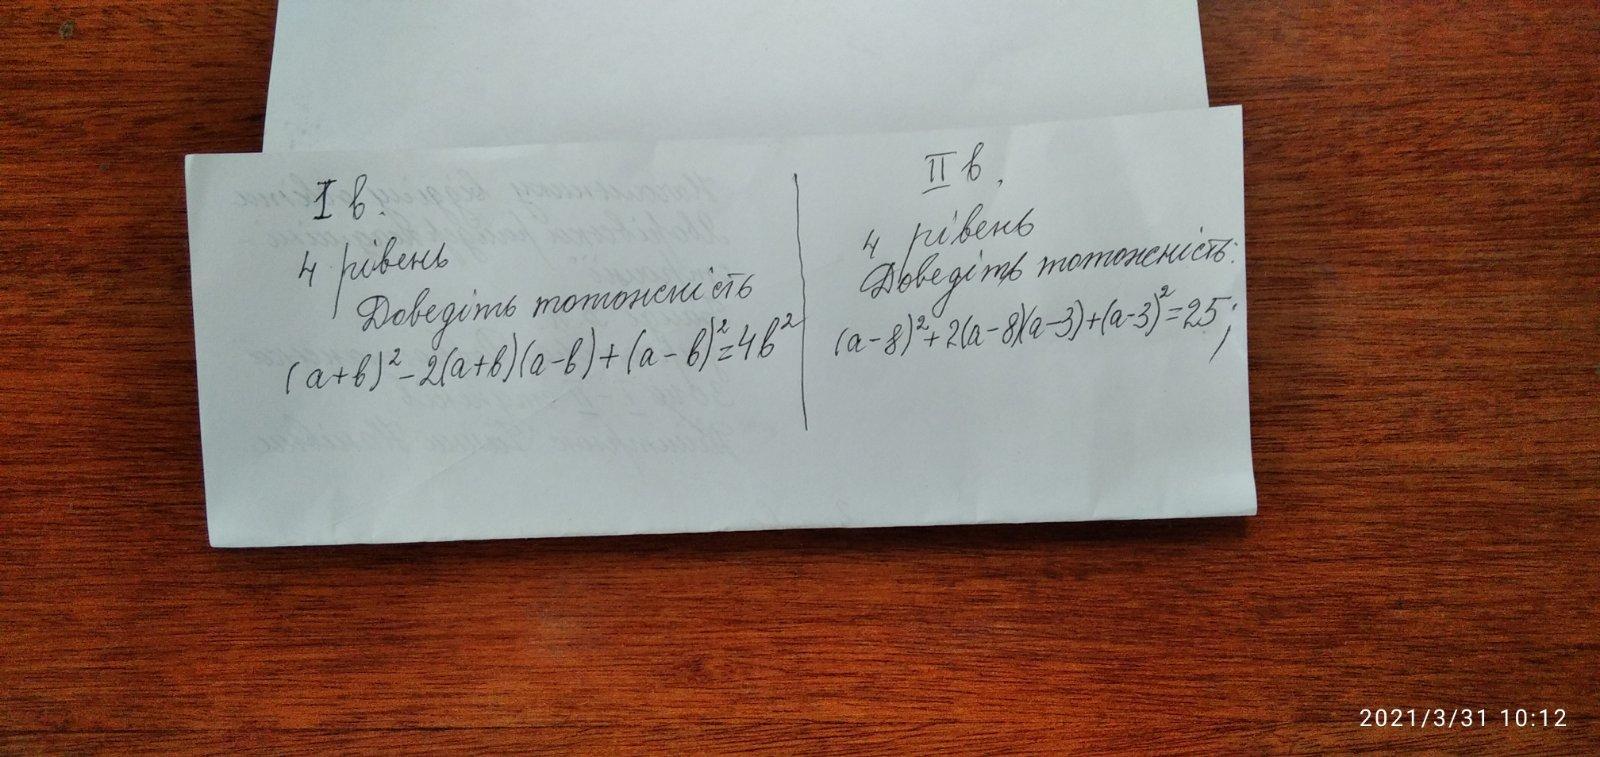 I в.
4 рівень
Доведіть тотожність
(a+b)²-2(a+b)(a-b)+(a-b)²=4b²
II в.
4 рівень
Доведіть тотожність:
(a-8)²+2(a-8)(a-3)+(a-3)²=25;
2021/3/31 10:12